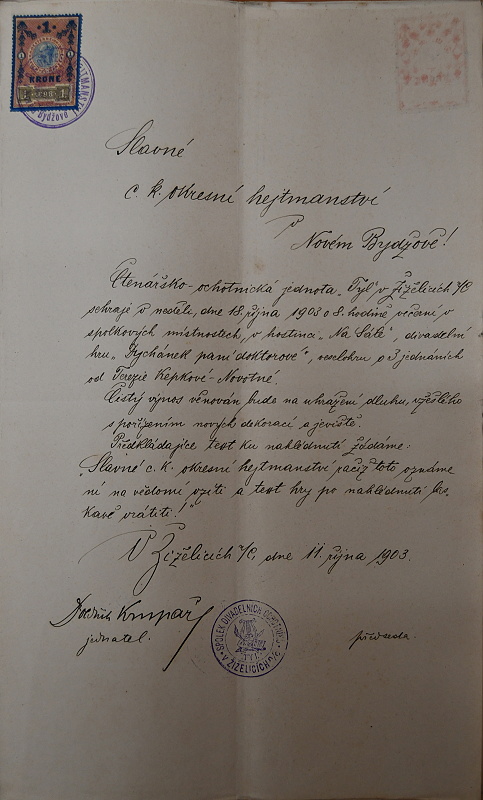 1
KRONE
1898
HEJTMANSTVÍ
Bydžově
Slavné
c. k. okresní hejtmanství
v
Novém Bydžově!
Čtenářsko-ochotnická jednota „Tyl" v Žiželicích n/C
sehraje v neděli, dne 18. října 1903 o 8. hodině večerní v
spolkových místnostech, v hostinci „Na Sále", divadelní
hru „Dýchánek paní doktorové", veselohru o 3 jednáních
od Terezie Kepkové-Novotné.
Čistý výnos věnován bude na uhražení dluhu, vzešlého
s pořízením nových dekorací a jeviště.
Předkládajíce text ku nahlédnutí žádáme:
„Slavné c. k. okresní hejtmanství račiž toto oznáme
ní na vědomí vzíti a text hry po nahlédnutí las
kavě vrátiti!"
V Žiželicích n/C, dne 11. října 1903.
Krupař
jednatel.
předseda.
SPOLEK DIVADELNÍCH OCHOTNÍKŮ
V ŽIŽELICÍCH n/C.